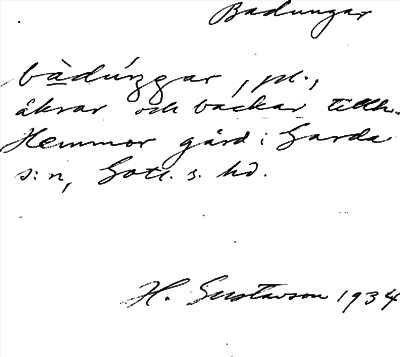 Badungar
bàdúŋgar, pl.,
åkrar och backar tillh.
Hemmor gård i Garda
s:n, Gotl. s. hd.
H. Gustavson 1934